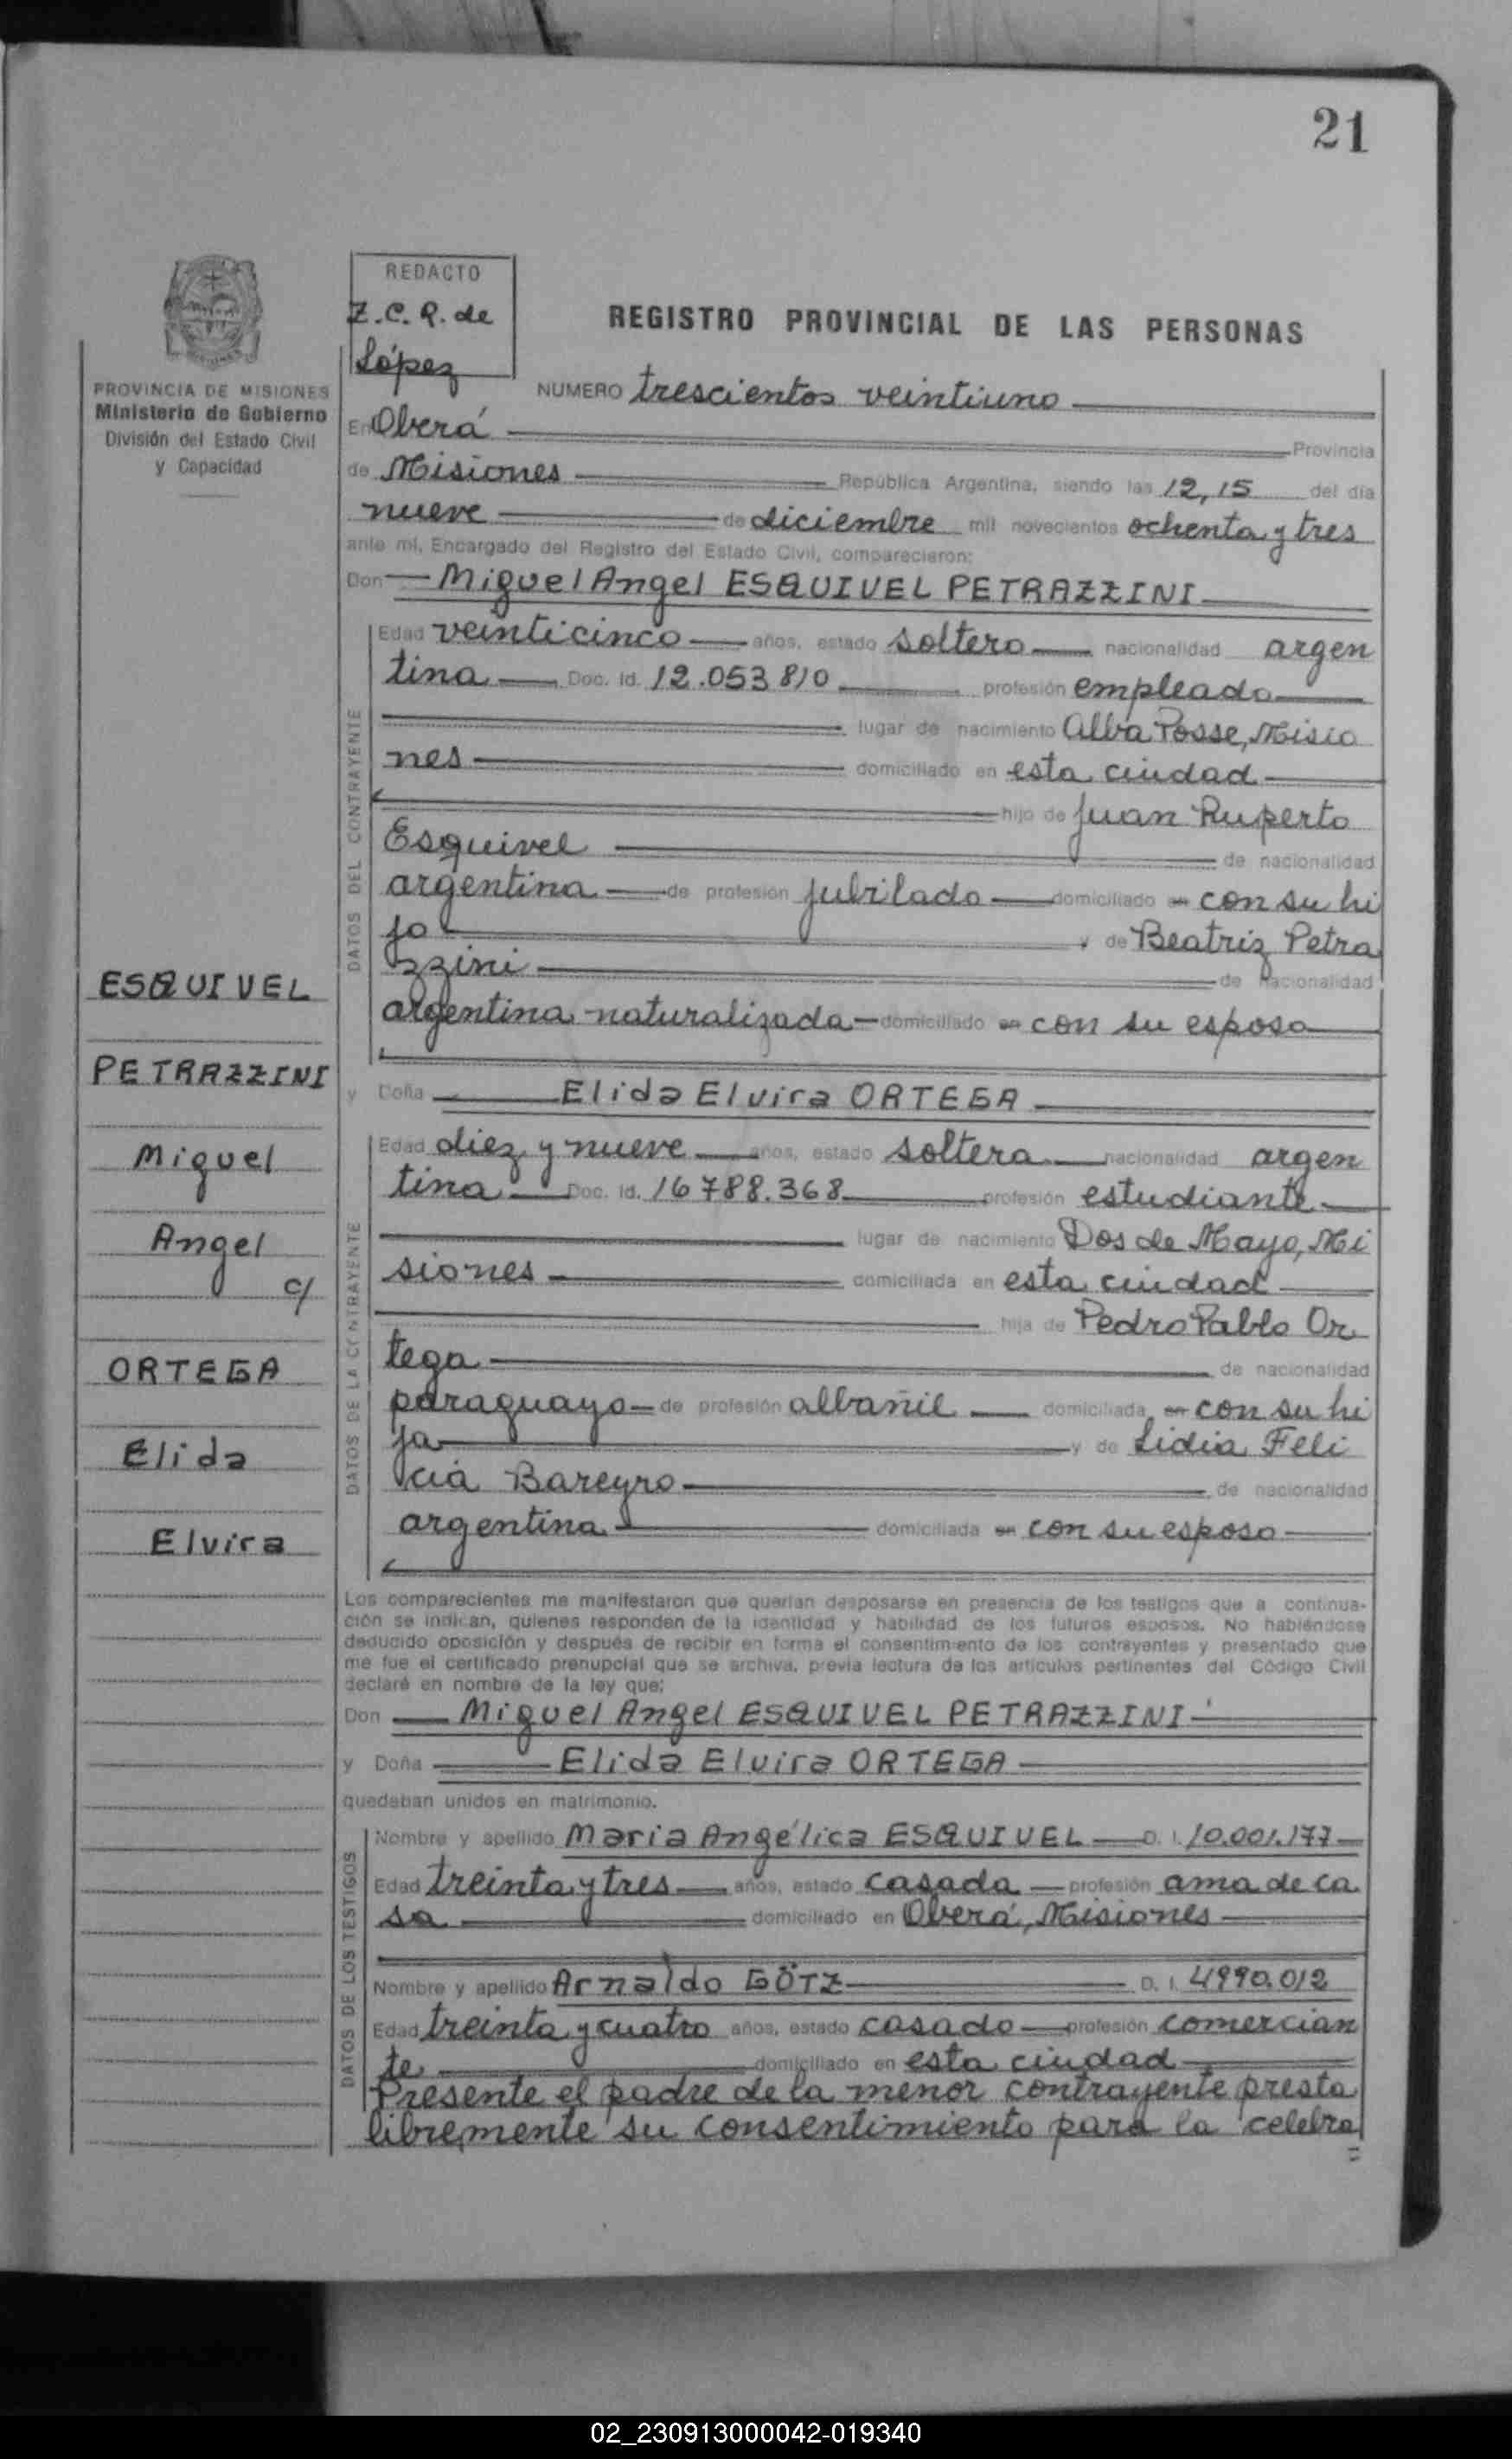 21
REDACTO
Z.C.R. de
López
REGISTRO PROVINCIAL DE LAS PERSONAS
PROVINCIA DE MISIONES
Ministerio de Gobierno
División del Estado Civil
y Capacidad
NUMERO trescientos veintiuno
En Oberá Provincia
de Misiones República Argentina, siendo las 12,15 del día
nueve de diciembre mil novecientos ochenta y tres
ante mí, Encargado del Registro del Estado Civil, comparecieron:
Don Miguel Angel ESQUIVEL PETRAZZINI
DATOS DEL CONTRAYENTE
Edad veinticinco años, estado soltero nacionalidad argen
tina Doc. Id. 12.053.810 profesión empleado
lugar de nacimiento Alba Posse, Misio
nes domiciliado en esta ciudad
hijo de Juan Ruperto
Esquivel de nacionalidad
argentina de profesión jubilado domiciliado en con su hi
jo y de Beatriz Petra
zzini de nacionalidad
argentina naturalizada domiciliado en con su esposo
ESQUIVEL
PETRAZZINI
Miguel
Angel
c/
ORTEGA
Elida
Elvira
y Doña Elida Elvira ORTEGA
DATOS DE LA CONTRAYENTE
Edad diez y nueve años, estado soltera nacionalidad argen
tina Doc. Id. 16788.368 profesión estudiante
lugar de nacimiento Dos de Mayo, Mi
siones domiciliada en esta ciudad
hija de Pedro Pablo Or
tega de nacionalidad
paraguayo de profesión albañil domiciliada en con su hi
ja y de Lidia Feli
cia Bareyro de nacionalidad
argentina domiciliada en con su esposo
Los comparecientes me manifestaron que querían desposarse en presencia de los testigos que a continua-
ción se indican, quienes responden de la identidad y habilidad de los futuros esposos. No habiéndose
deducido oposición y después de recibir en forma el consentimiento de los contrayentes y presentado que
me fue el certificado prenupcial que se archiva, previa lectura de los artículos pertinentes del Código Civil
declaré en nombre de la ley que:
Don Miguel Angel ESQUIVEL PETRAZZINI
y Doña Elida Elvira ORTEGA
quedaban unidos en matrimonio.
DATOS DE LOS TESTIGOS
Nombre y apellido Maria Angélica ESQUIVEL D. I. 10.001.177
Edad treinta y tres años, estado casada profesión ama de ca
sa domiciliado en Oberá, Misiones
Nombre y apellido Arnaldo GÖTZ D. I. 4990.012
Edad treinta y cuatro años, estado casado profesión comercian
te domiciliado en esta ciudad
Presente el padre de la menor contrayente presta
libremente su consentimiento para la celebra
=
02_230913000042-019340